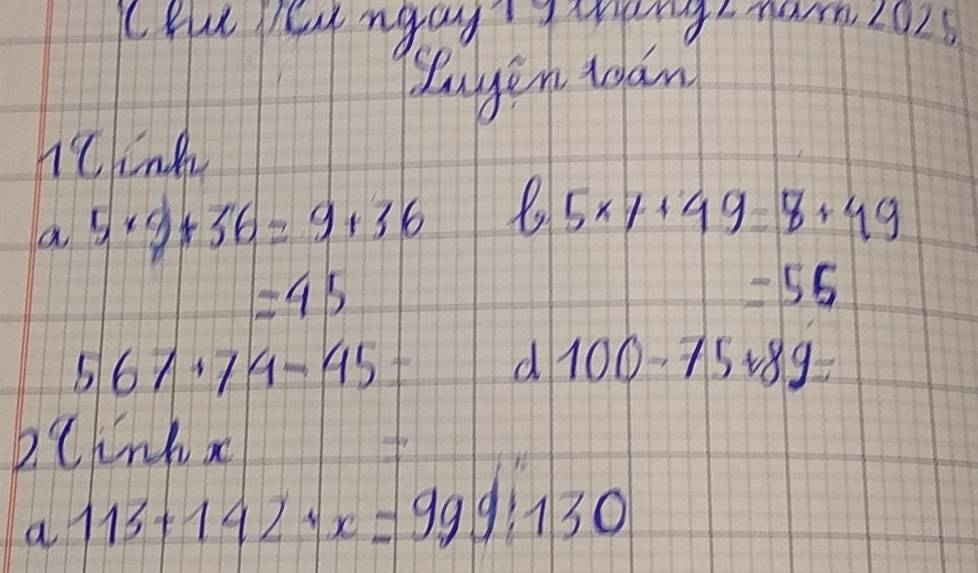 ngày 19 tháng 2 năm 2025
Luyện toán
1 Tính
a 5 × 9 + 36 = 9 + 36 b 5 × 7 + 49 = 8 + 49
= 45 = 56
567 + 74 - 45 = d 100 - 75 + 89 =
2 Tính x =
a 113 + 142 + x = 999 : 130